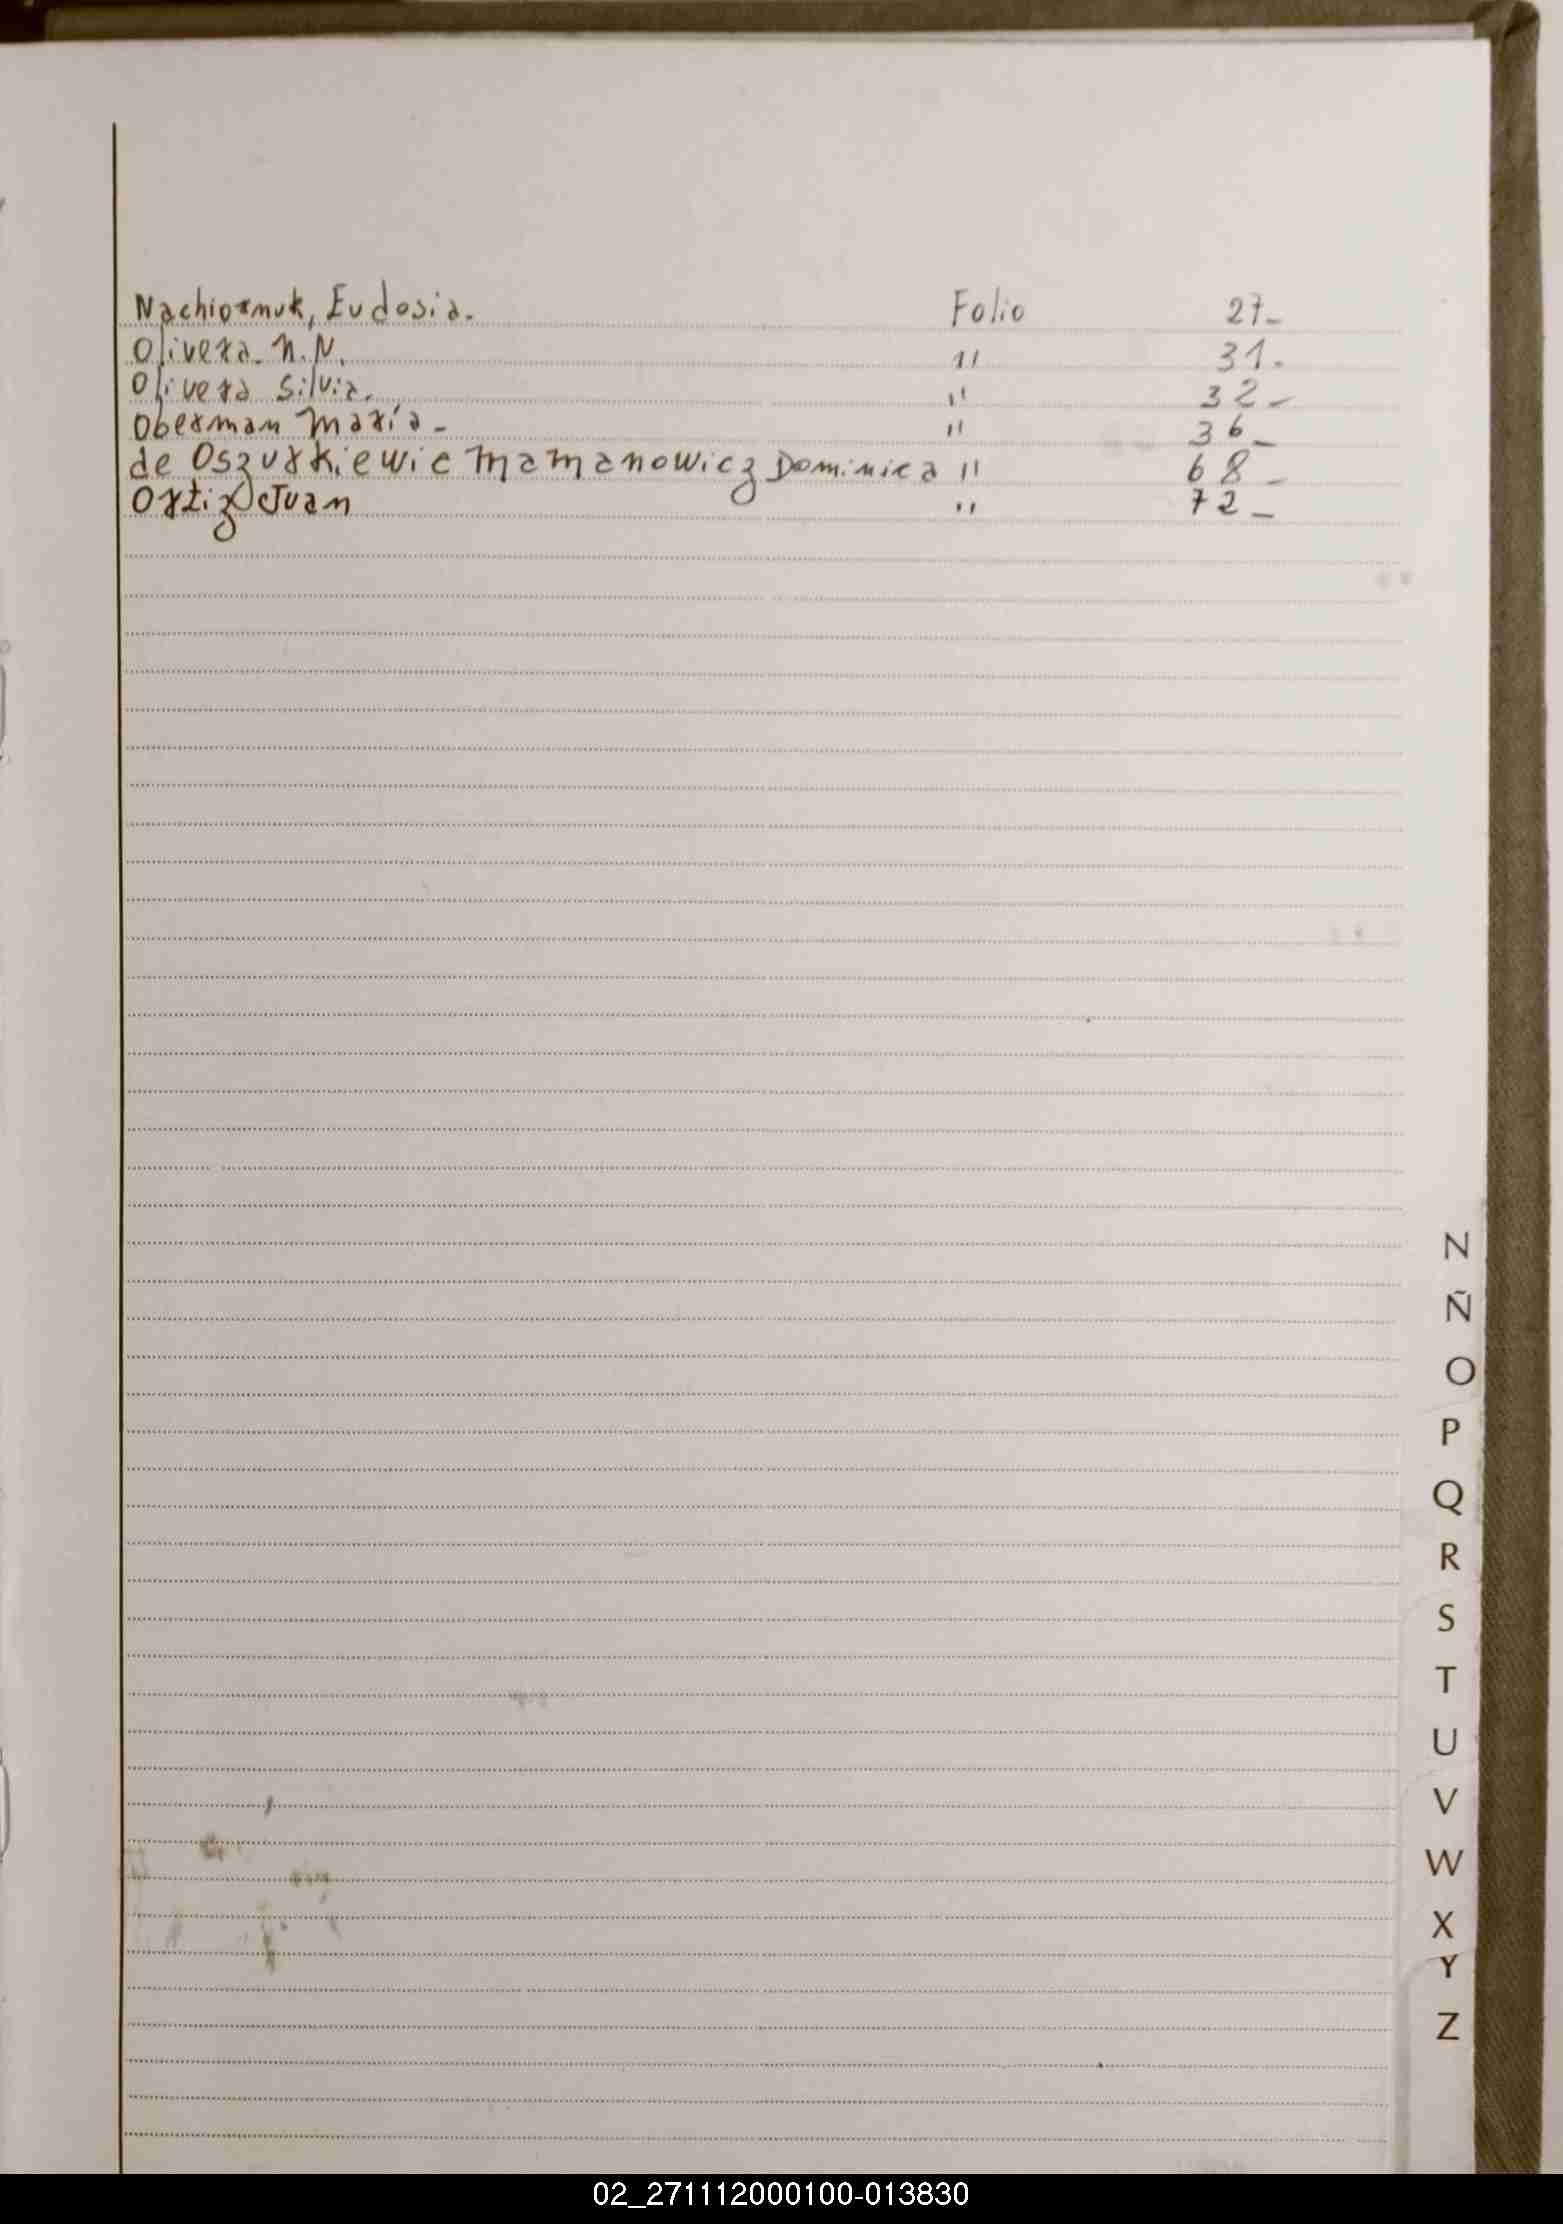 Nachiornuk, Eudosia. Folio 27-
Olivera. N.N. " 31.
Olivera Silvia. " 32-
Oberman María - " 36-
de Oszurkiewic Mamanowicz Dominica " 68-
Ortiz Juan " 72-
N
Ñ
O
P
Q
R
S
T
U
V
W
X
Y
Z
02_271112000100-013830